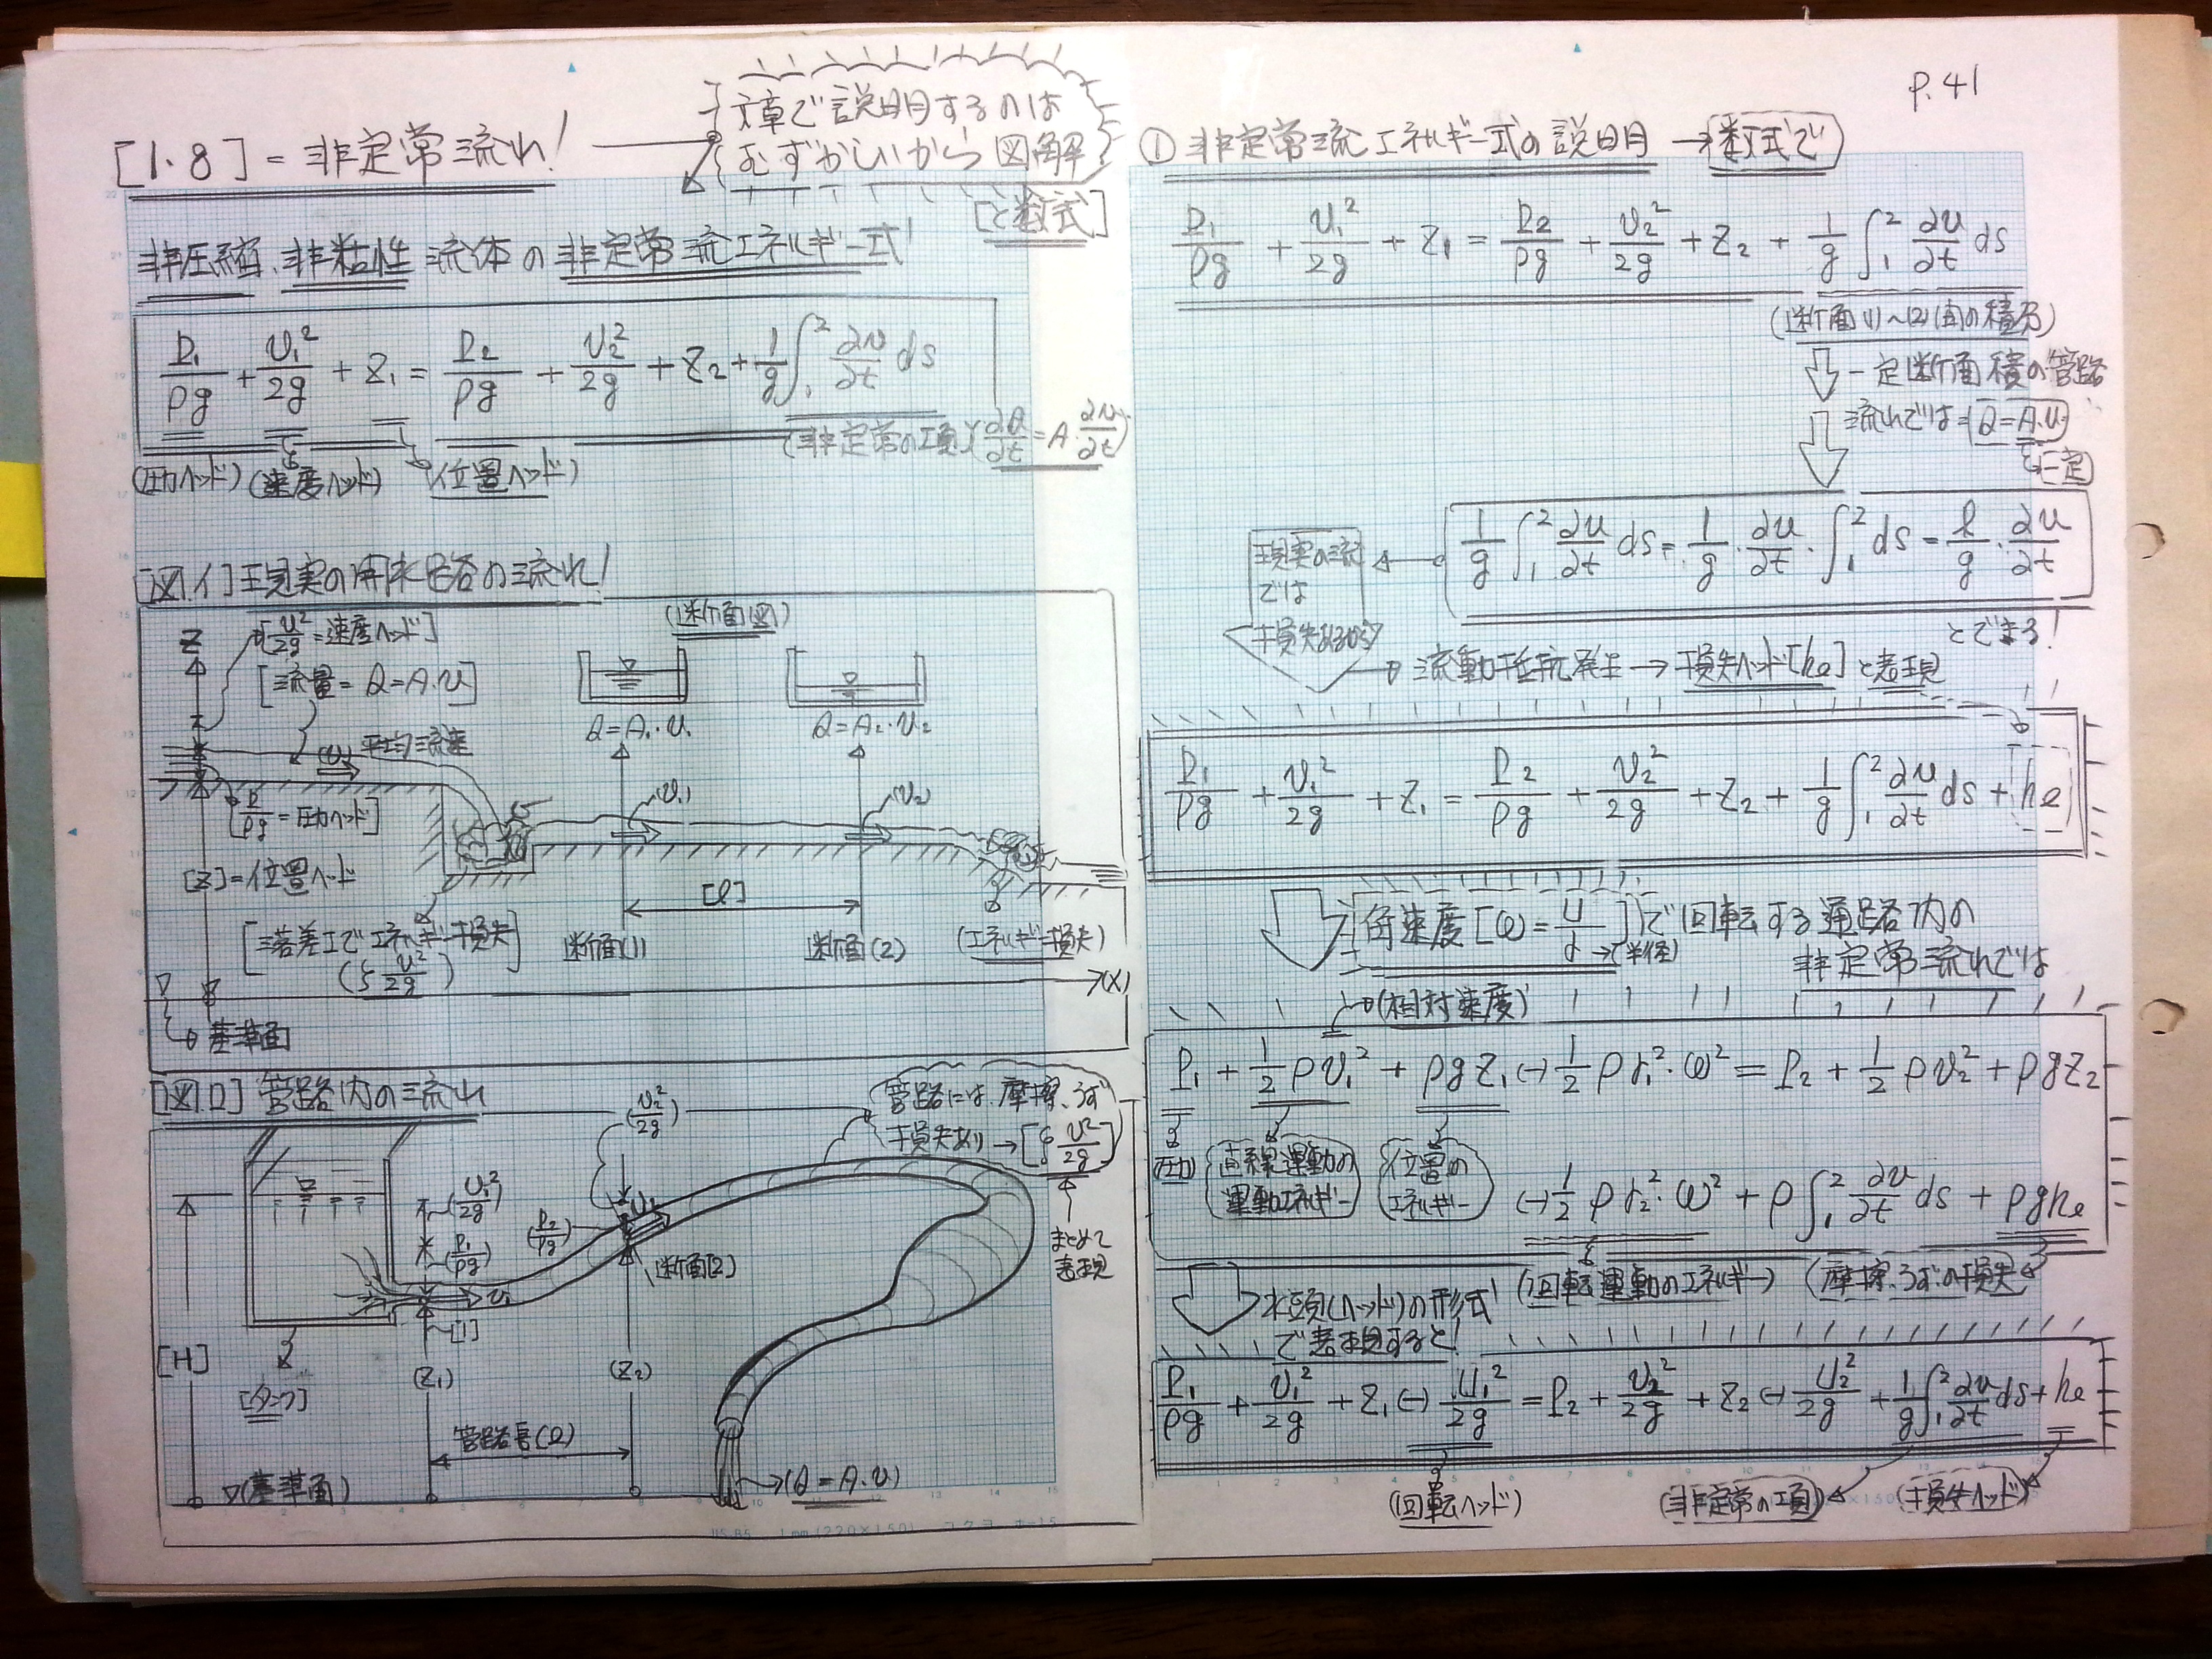 P.41
[1.8]=非定常流れ!
文章で説明するのは
むずかしいから図解
[と数式]
非圧縮、非粘性流体の非定常流エネルギー式!
P₁/ρg + υ₁²/2g + Z₁ = P₂/ρg + υ₂²/2g + Z₂ + 1/g ∫₁² ∂υ/∂t ds
(非定常の項)(∂Q/∂t = A・∂υ/∂t)
(圧力ヘッド) (速度ヘッド) (位置ヘッド)
[図.イ]現実の用水路の流れ!
Z
[υ²/2g=速度ヘッド]
[流量=Q=A.υ]
(断面図)
Q=A₁・υ₁
Q=A₂・υ₂
(υ) 平均流速
[P/ρg=圧力ヘッド]
(υ₁)
(υ₂)
[Z]=位置ヘッド
[ℓ]
[落差工でエネルギー損失
(ζ υ²/2g)]
断面(1)
断面(2)
(エネルギー損失)
(X)
基準面
[図.ロ]管路内の流れ
(υ₂²/2g)
管路には、摩擦、うず
損失あり→[ζ υ²/2g]
まとめて
表現
(υ₁²/2g)
(P₁/ρg)
(P₂/ρg)
υ₂
断面[2]
υ₁
[1]
[H]
[タンク]
(Z₁)
(Z₂)
管路長(ℓ)
(基準面)
(Q=A.υ)
①非定常流エネルギー式の説明→数式で
P₁/ρg + υ₁²/2g + Z₁ = P₂/ρg + υ₂²/2g + Z₂ + 1/g ∫₁² ∂υ/∂t ds
(断面(1)~(2)間の積分)
一定断面積の管路
流れでは=Q=A.υ
一定
1/g ∫₁² ∂υ/∂t ds = 1/g・∂υ/∂t・∫₁² ds = ℓ/g・∂υ/∂t
とできる!
現実の流
では
損失あるから
流動抵抗発生→損失ヘッド[he]と表現
P₁/ρg + υ₁²/2g + Z₁ = P₂/ρg + υ₂²/2g + Z₂ + 1/g ∫₁² ∂υ/∂t ds + he
角速度[ω=U/r]で回転する通路内の
→(半径)
非定常流れでは
(相対速度)
P₁ + 1/2 ρυ₁² + ρgZ₁ (-) 1/2 ρr₁²・ω² = P₂ + 1/2 ρυ₂² + ρgZ₂
(-) 1/2 ρr₂²・ω² + ρ∫₁² ∂υ/∂t ds + ρghe
圧力
直線運動の
運動エネルギー
位置の
エネルギー
(回転運動のエネルギー)
(摩擦、うずの損失)
水頭(ヘッド)の形式
で表現すると!
P₁/ρg + υ₁²/2g + Z₁ (-) U₁²/2g = P₂ + υ₂²/2g + Z₂ (-) U₂²/2g + 1/g ∫₁² ∂υ/∂t ds + he
(回転ヘッド)
(非定常の項)
(損失ヘッド)